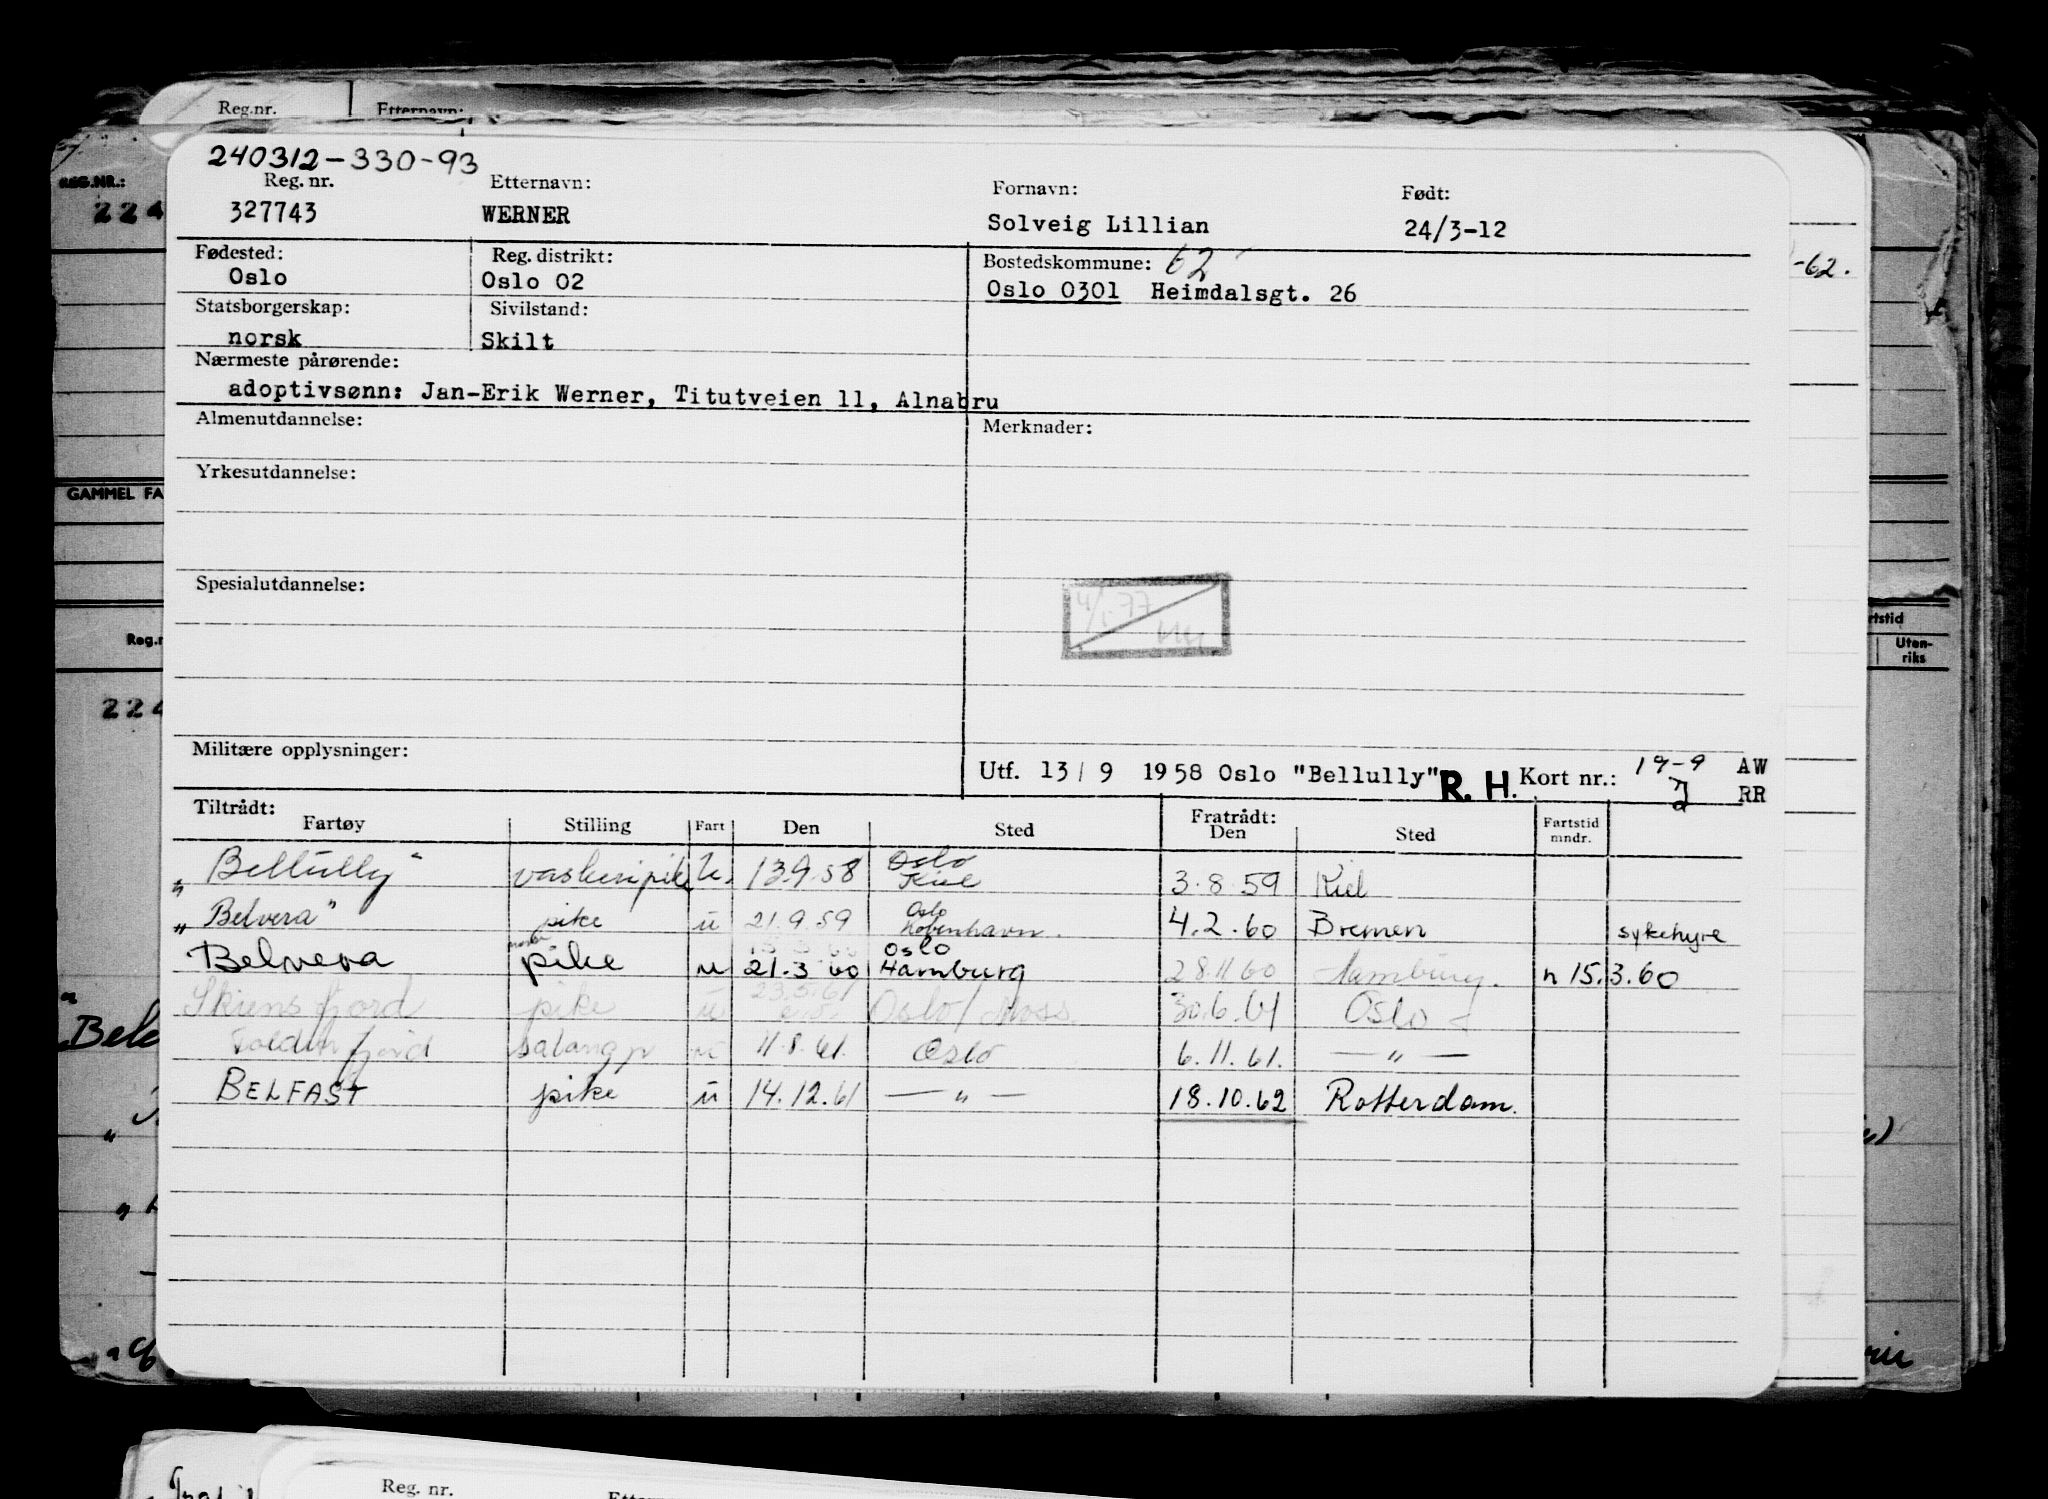 Reg.nr.
Etternavn:
240312-330-93
Reg. nr. Etternavn: Fornavn: Født:
327743 WERNER Solveig Lillian 24/3-12
Fødested: Reg. distrikt: Bostedskommune: 62
Oslo Oslo 02 Oslo 0301 Heimdalsgt. 26
Statsborgerskap: Sivilstand:
norsk Skilt
Nærmeste pårørende:
adoptivsønn: Jan-Erik Werner, Titutveien 11, Alnabru
Almenutdannelse: Merknader:
Yrkesutdannelse:
Spesialutdannelse:
Militære opplysninger:
Utf. 13/9 1958 Oslo "Bellully" R. H. Kort nr.: 19-9 AW
RR
Tiltrådt: Fratrådt:
Fartøy Stilling Fart Den Sted Den Sted Fartstid mndr.
Oslo
"Bellully" vaskeripike u. 13.9.58 Kiel 3.8.59 Kiel
Oslo
"Belvera" pike u 21.9.59 København. 4.2.60 Bremen sykehyre
Oslo
Belvera pike u 21.3 60 Hamburg 28.11.60 Hamburg. n 15.3.60
23.5.61
Skiensfjord pike u Oslo/Moss. 30.6.61 Oslo
fjord salongp 11.8.61. Oslo 6.11.61. — " —
BELFAST pike u 14.12.61 — " — 18.10.62 Rotterdam.
REG.NR.:
224
GAMMEL FA
Reg.n
224
-62.
rtstid
Uten-
riks
Reg. nr.